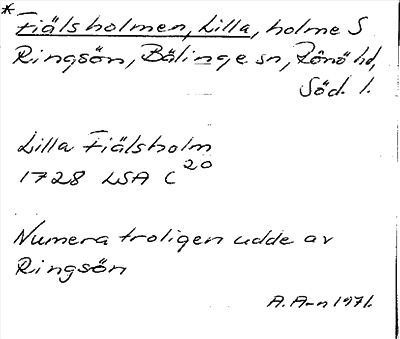 * Fiälsholmen, Lilla, holme S
Ringsön, Bälinge sn, Rönö hd,
Söd. l.
Lilla Fiälsholm
1728 LSA C 20
Numera troligen udde av
Ringsön
A. A-n 1971.